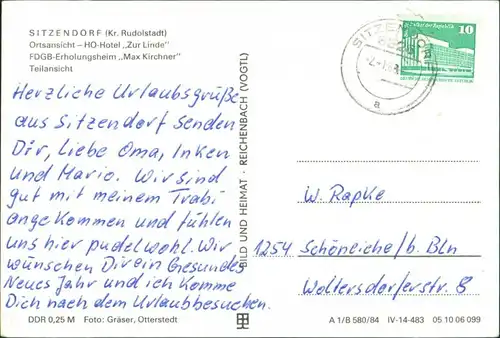 SITZENDORF (Kr. Rudolstadt)
Ortsansicht – HO-Hotel „Zur Linde"
FDGB-Erholungsheim „Max Kirchner"
Teilansicht
Herzliche Urlaubsgrüße
aus Sitzendorf senden
Dir, Liebe Oma, Inken
und Mario. Wir sind
gut mit meinem Trabi
angekommen und fühlen
uns hier pudelwohl. Wir
wünschen Dir ein Gesundes
Neues Jahr und ich komme
Dich nach dem Urlaub besuchen.
DDR 0,25 M Foto: Gräser, Otterstedt
BILD UND HEIMAT · REICHENBACH (VOGTL)
SITZENDORF
a
10
W. Rapke
1254 Schöneiche/b. Bln
Woltersdorferstr. 8
A 1/B 580/84 IV-14-483 05 10 06 099